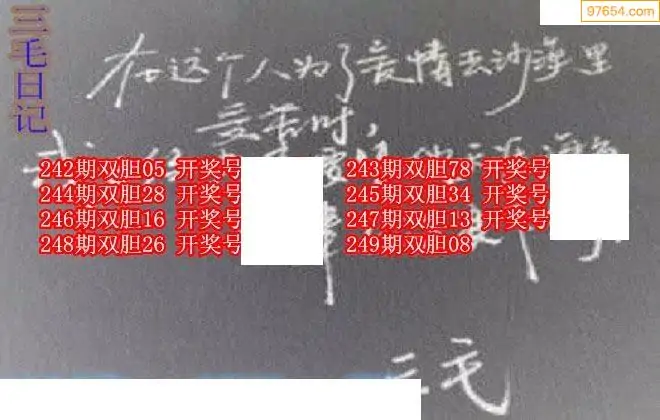 97654.com
三毛日记
在这个人为了爱情去沙漠里
受苦时，
242期双胆05 开奖号
243期双胆78 开奖号
244期双胆28 开奖号
245期双胆34 开奖号
246期双胆16 开奖号
247期双胆13 开奖号
248期双胆26 开奖号
249期双胆08
三毛